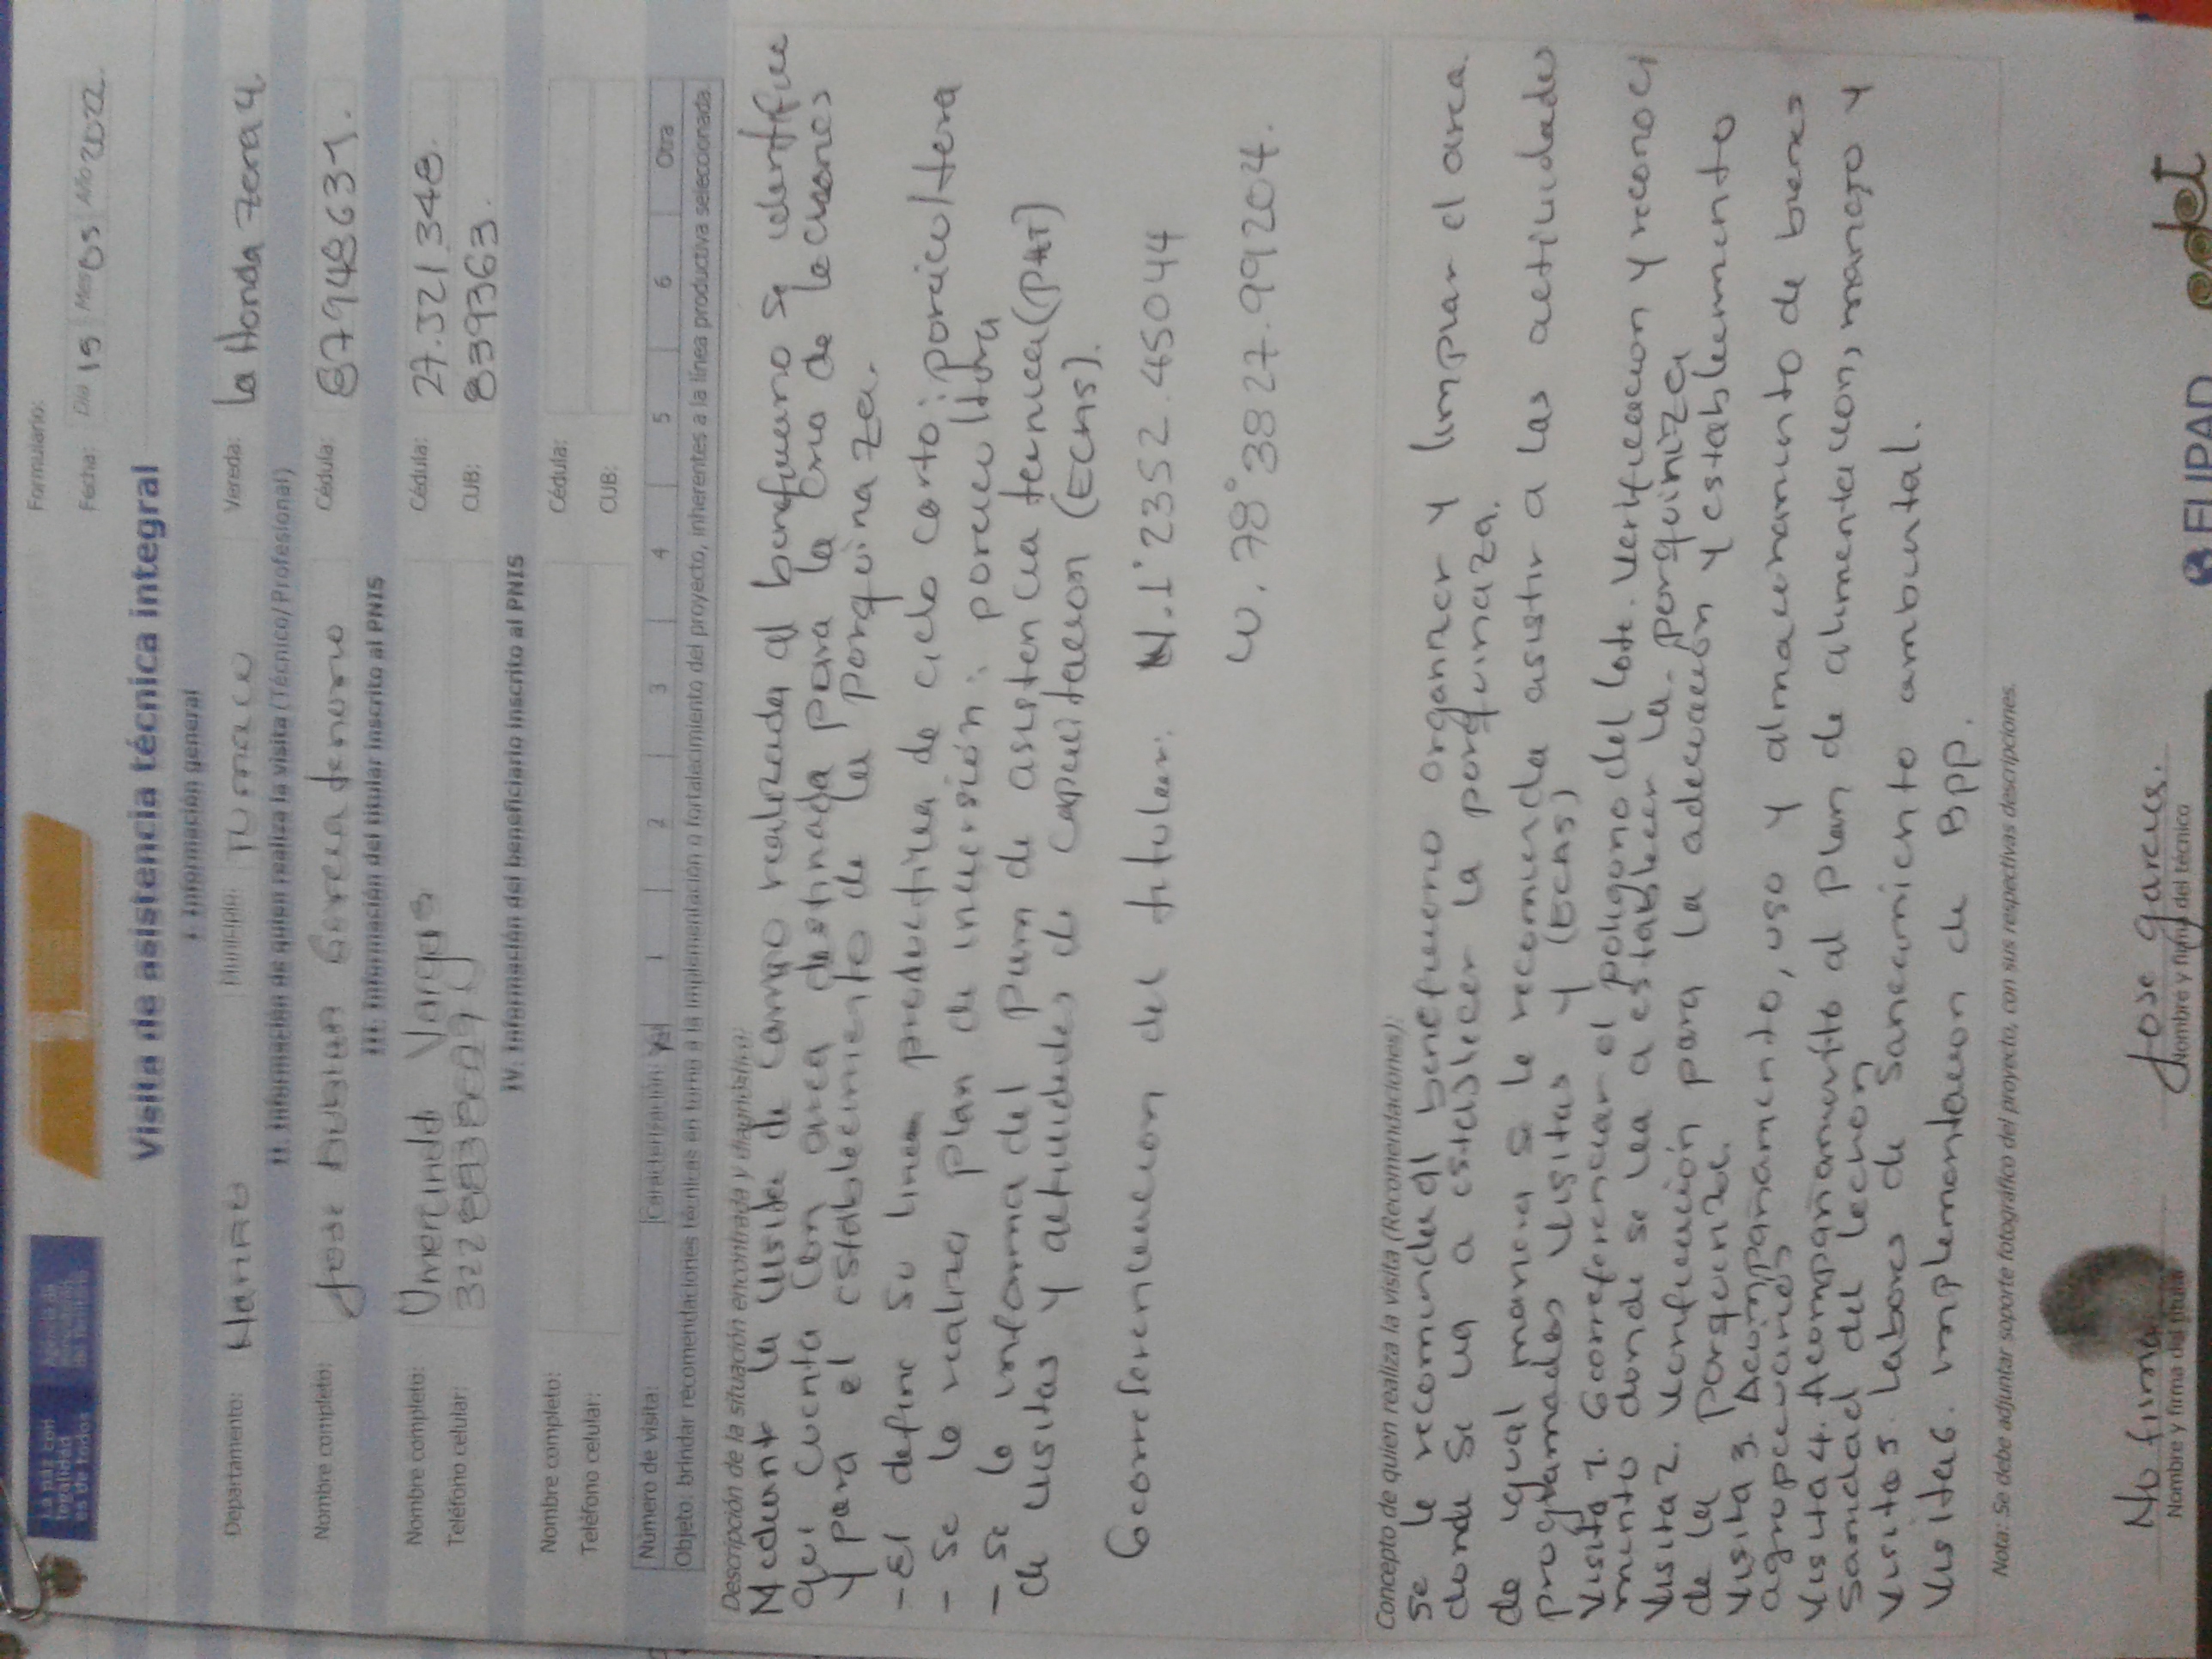 La paz con
legalidad
es de todos
Formulario:
Fecha: Día 15 Mes 05 Año 2022
Visita de asistencia técnica integral
I. Información general
Departamento: Nariño Municipio: Tumaco Vereda: la Honda zona 4
II. Información de quien realiza la visita (Técnico/Profesional)
Nombre completo: Jose Cédula: 87948631.
III. Información del titular inscrito al PNIS
Nombre completo: Umercinda Vargas Cédula: 27.321.348.
Teléfono celular: CUB: 8393363.
IV. Información del beneficiario inscrito al PNIS
Nombre completo: Cédula:
Teléfono celular: CUB:
Número de visita: Caracterización: 1 2 3 4 5 6 Otra
Objeto: brindar recomendaciones técnicas en torno a la implementación o fortalecimiento del proyecto, inherentes a la línea productiva seleccionada.
Descripción de la situación encontrada y diagnóstico:
Mediante la visita de campo realizada al beneficiario se identifica
que cuenta con area destinada para la cria de lechones
y para el establecimiento de la porquinaza.
- El define su linea productiva de ciclo corto: poricultora
- Se le realiza plan de inversión: porcicultora
- Se le informa del plan de asistencia tecnica (PAT)
de visitas y actividades de capacitacion (ECAS).
Georreferenciacion del titular: N.1°2352.45044
W.78°3827.99204.
Concepto de quien realiza la visita (Recomendaciones):
Se le recomienda al beneficiario organizar y limpiar el area
donde se va a establecer la porquinaza.
de igual manera se le recomienda asistir a las actividades
programadas visitas y (ECAS)
Visita 1. Georreferenciar el poligono del lote. Verificacion y reconoci
miento donde se va a establecer la porquiniza
Visita 2. Verificación para la adecuación y establecimiento
de la porquiniza.
Visita 3. Acompañamiento, uso y almacenamiento de buenas
agropecuarias
Visita 4. Acompañamiento al plan de alimentacion, manejo y
Sanidad del lechon
Visita 5 labores de Saneamiento ambiental.
Visita 6. implementacion de BPP.
Nota: Se debe adjuntar soporte fotográfico del proyecto, con sus respectivas descripciones.
No firma
Nombre y firma del titular
Jose garces.
Nombre y firma del técnico
FUPAD